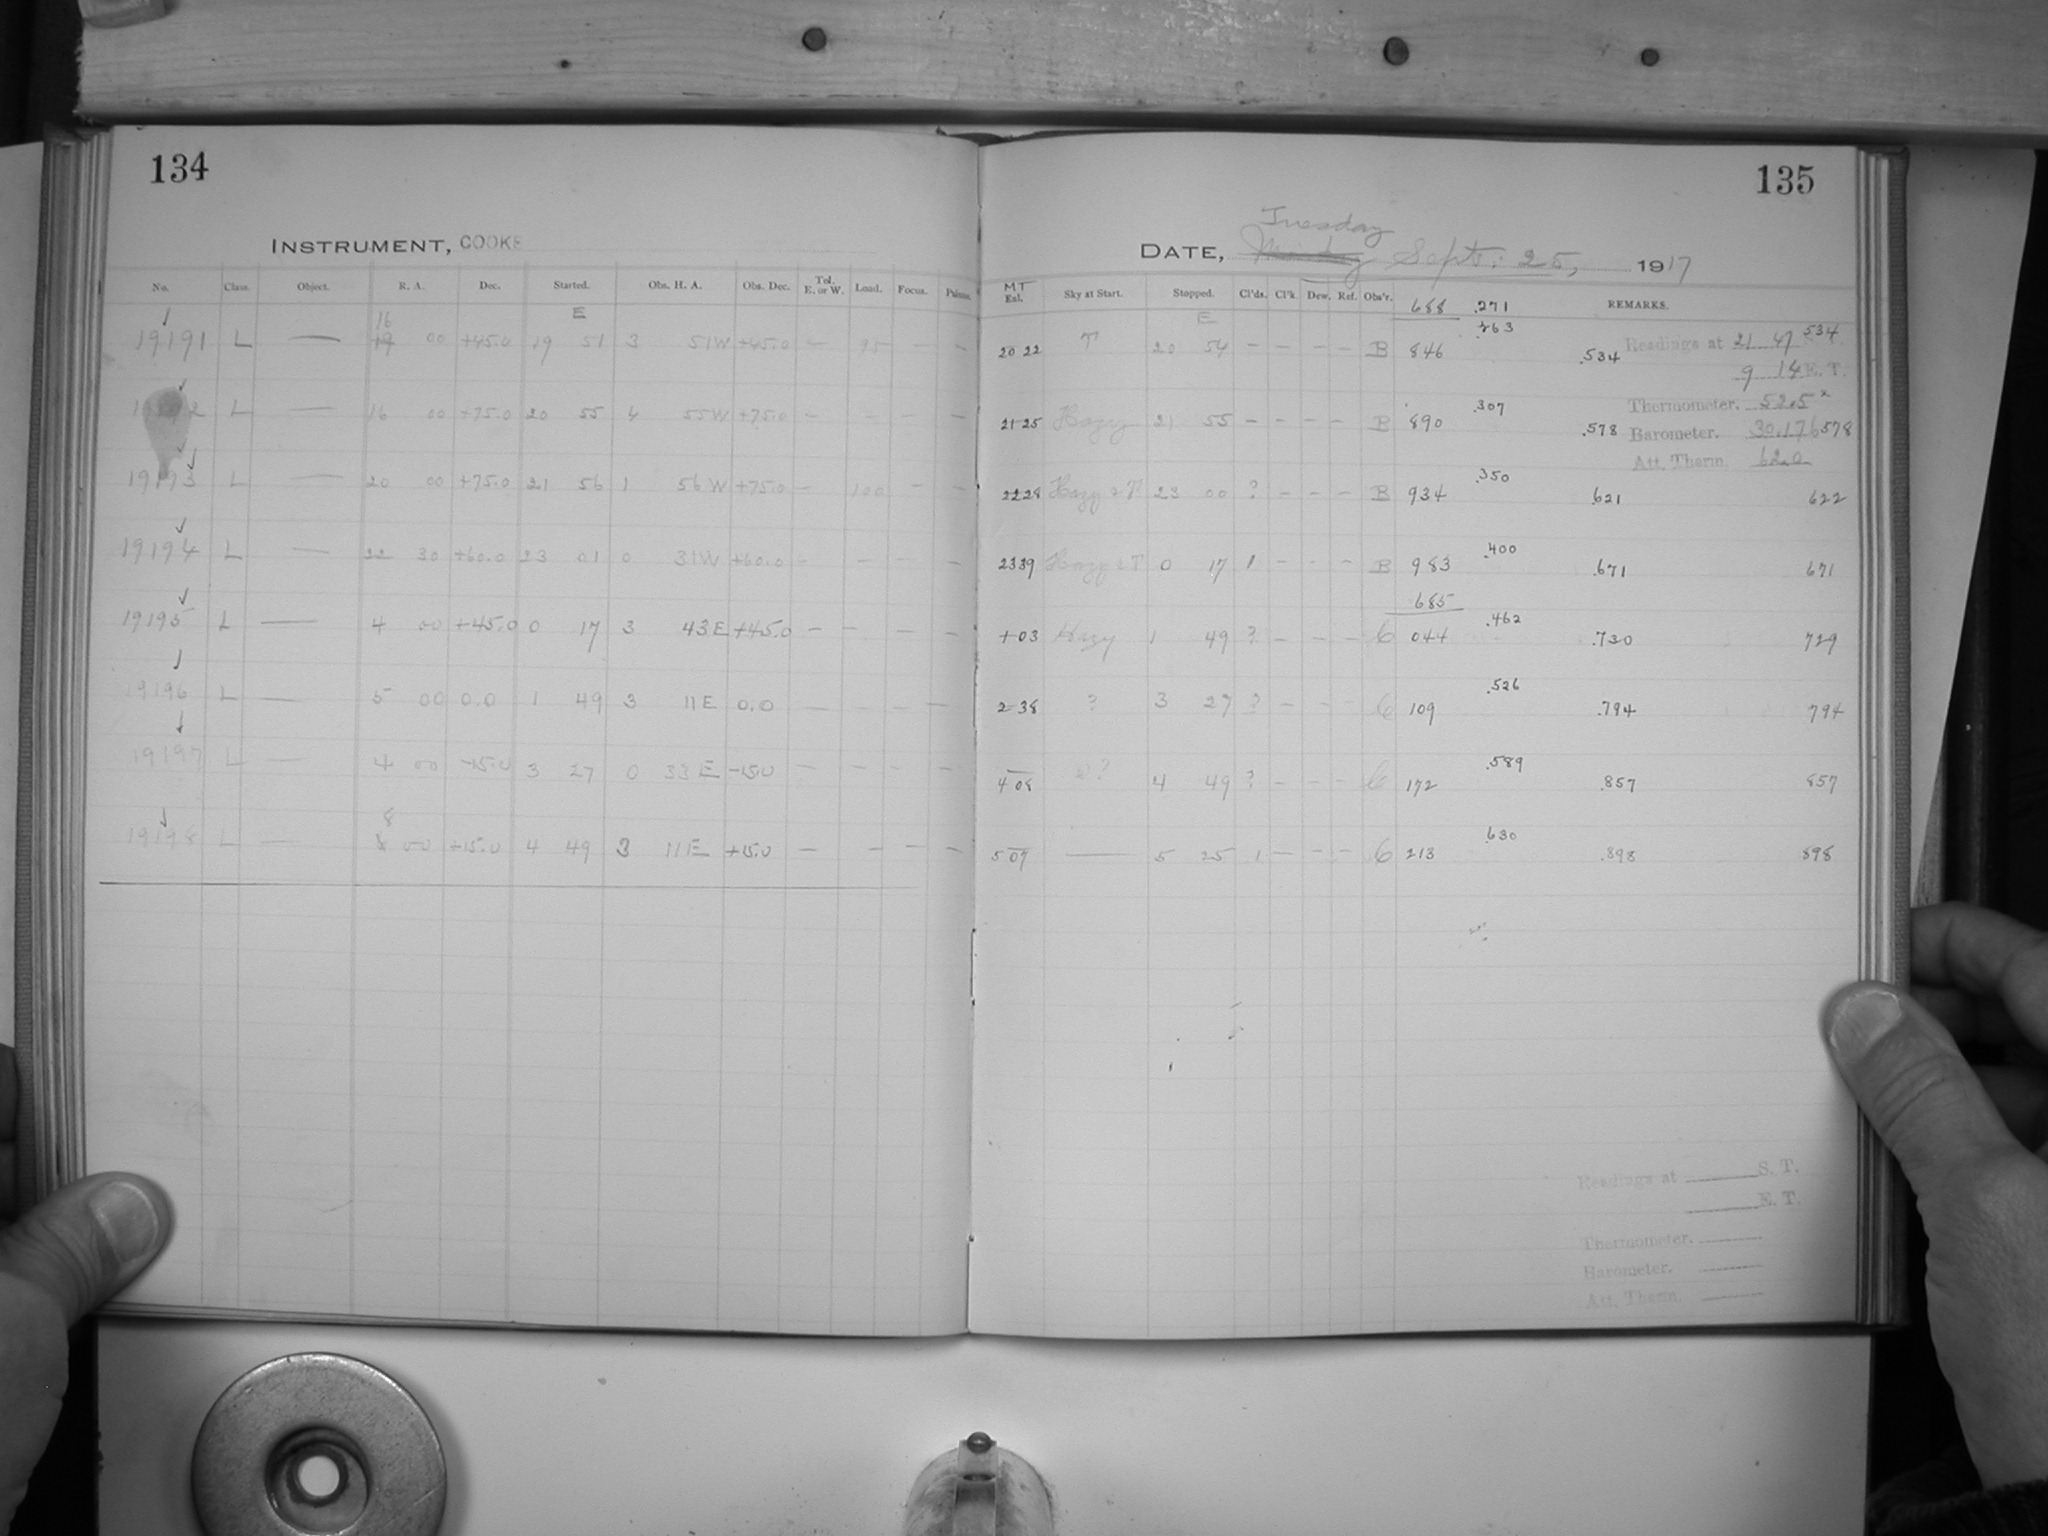 134
INSTRUMENT, COOKE
No. Class. Object. R. A. Dec. Started. Obs. H. A. Obs. Dec. Tel. E. or W. Load. Focus.
E
16
19191 L — 19 00 +45.0 19 51 3 51W +45.0 — 95 — —
19192 L — 16 00 +75.0 20 55 4 55W +75.0 — — — —
19193 L — 20 00 +75.0 21 56 1 56W +75.0 — 100 — —
19194 L — 22 30 +60.0 23 01 0 31W +60.0 — — — —
19195 L — 4 00 +45.0 0 17 3 43E +45.0 — — — —
19196 L — 5 00 0.0 1 49 3 11E 0.0 — — — —
19197 L — 4 00 -15.0 3 27 0 33E -15.0 — — — —
8
19198 L — 00 +15.0 4 49 3 11E +15.0 — — — —
135
Tuesday
DATE, Monday Sept. 25, 1917
MT
Sky at Start. Stopped. Cl'ds. Cl'k. Dew. Ref. Obs'r. 688 .271 REMARKS.
E
.263
20 22 T 20 54 — — — — B 846 .534 Readings at 21 47 534
9 14 E. T.
Thermometer. 52.5
21 25 Hazy 21 55 — — — — B 890 .307 .578 Barometer. 30.176 578
Att. Therm. 62.0
22 28 Hazy & T 23 00 ? — — — B 934 .350 .621 622
23 39 Hazy & T 0 17 1 — — — B 983 .400 .671 671
685
1 03 Hazy 1 49 ? — — — C 044 .462 .730 729
2 38 ? 3 27 ? — — — C 109 .526 .794 794
4 08 ? 4 49 ? — — — C 172 .589 .857 857
5 07 — 5 25 1 — — — C 213 .630 .898 898
Readings at S. T.
E. T.
Thermometer.
Barometer.
Att. Therm.